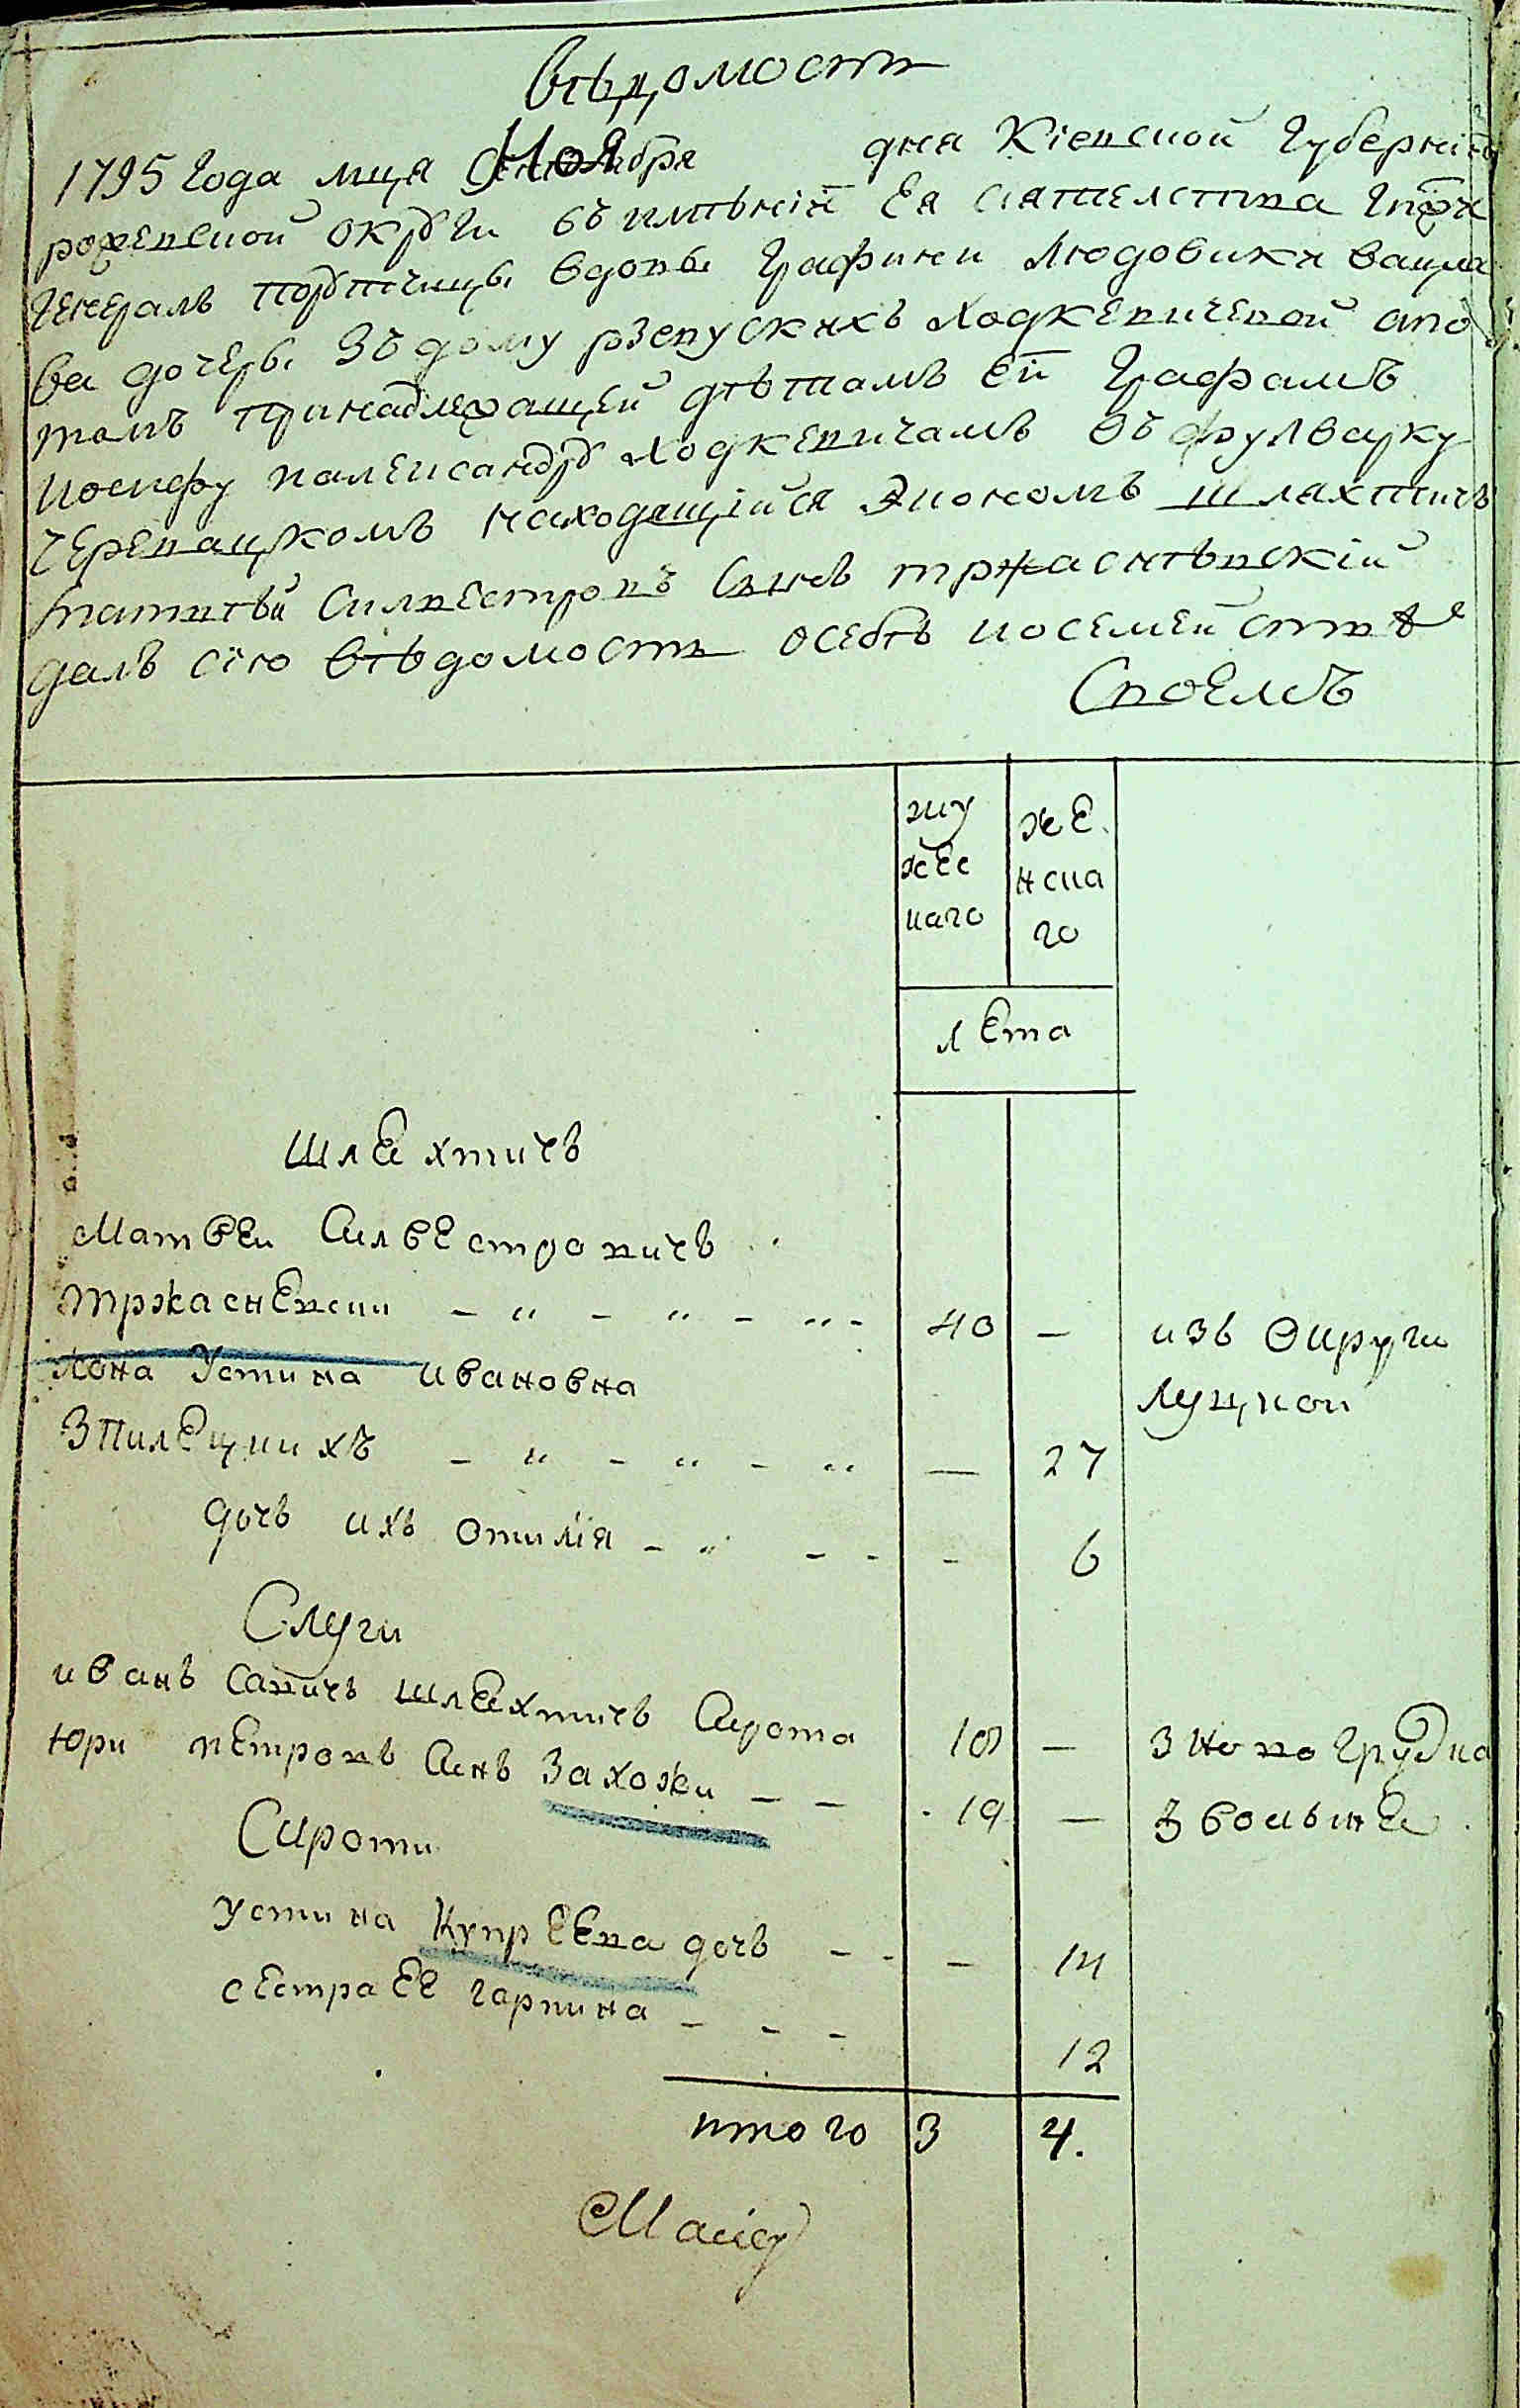 Вѣдомость
1795 Года мца Ноября дня Кіевской Губерніи
роженской округи въ имѣніи Ея сіятелства Гпжи
Генералъ порутчицы вдовы Графини Людовики вацла
ва дочеры Зъ дому рзевускихъ Ходкевичевой апо
томъ принадлежащей дѣтамъ Ей Графамъ
иосифу иалександру Ходкевичамъ въ фулварку
черевацкомъ находящійся Экономъ шляхтичъ
матвѣй Силвестровъ Сынъ тржаснѣвскій
далъ сію вѣдомость осебѣ иосемействѣ
Своемъ
му
жес
каго
же
нска
го
лета
шлехтичь
Матвеи Силвестровичь
тржасневски - " - " - " - 40 — изь Округи
жона Устина ивановна Луцкои
Зпилецкихъ - " - " - " — 27
дочь ихь отилія - " - - - 6
Слуги
ивань савичь шлехтичь Сирота 18 — З новогрудка
юри петровь Синь Захожи - - 19 — З волыне
Сироти
устина Купреева дочь - - - 14
сестра ее гарпина - - - 12
итого 3 4.